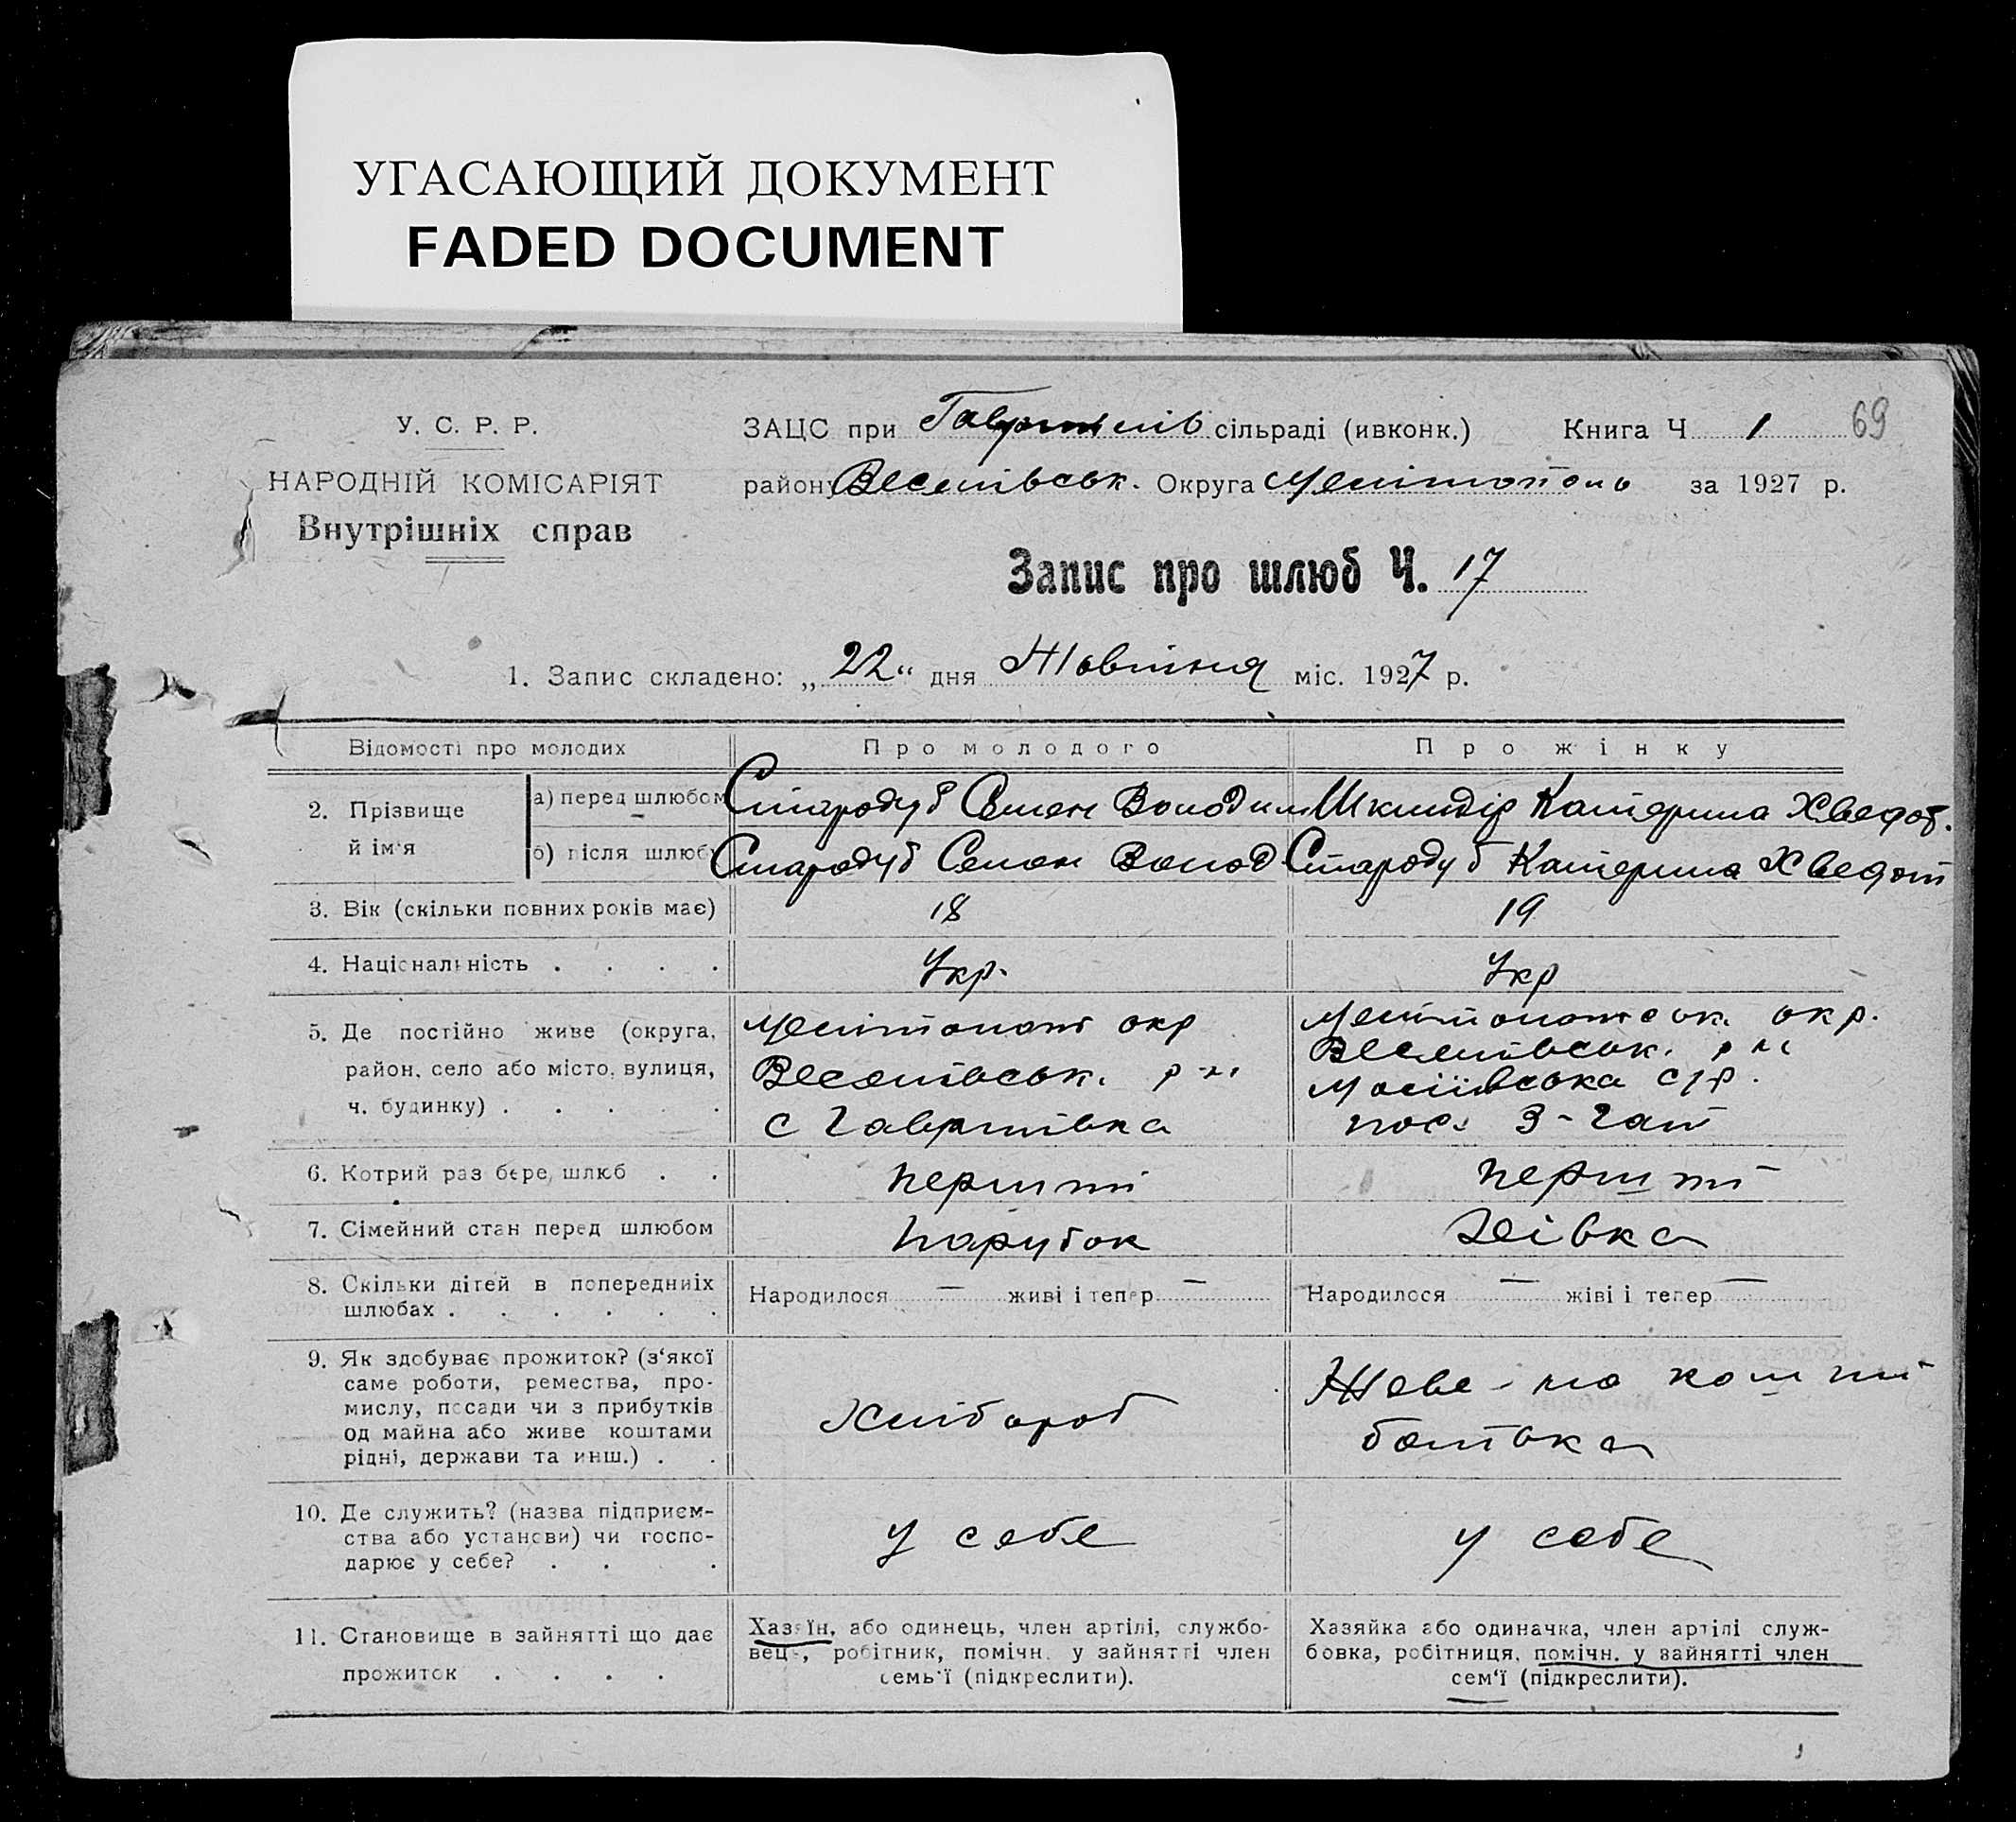 УГАСАЮЩИЙ ДОКУМЕНТ
FADED DOCUMENT
У. С. Р. Р.
НАРОДНІЙ КОМІСАРІЯТ
Внутрішніх справ
ЗАЦС при сільраді (ивконк.) Книга Ч 1 69
району Веселівськ. Округа Мелітополь за 1927 р.
Запис про шлюб Ч. 17
1. Запис складено: „22“ дня Жовтня міс. 1927 р.
Відомості про молодих Про молодого Про жінку
2. Прізвище й ім'я
а) перед шлюбом Стародуб Семен Володим Катерина Хведот.
б) після шлюбу Стародуб Семен Волод Стародуб Катерина Хведот
3. Вік (скільки повних років має) 18 19
4. Національність . . . . Укр. Укр
5. Де постійно живе (округа, район, село або місто, вулиця, ч. будинку) . . . .
Мелітополь окр
Веселівськ. р-н
с Гаврилівка
Мелітопольськ. окр.
Веселівськ. р-н
с/р.
пос. 3-
6. Котрий раз бере шлюб . . перший перший
7. Сімейний стан перед шлюбом парубок дівка
8. Скільки дітей в попередниіх шлюбах . . . . . .
Народилося — живі і тепер —
Народилося — жіві і тепер —
9. Як здобуває прожиток? (з‘якої
саме роботи, ремества, про-
мислу, посади чи з прибутків
од майна або живе коштами
рідні, держави та инш.) . .
Хлібороб
Живе на кошти
батька
10. Де служить? (назва підприєм-
ства або установи) чи госпо-
дарює у себе? . . .
у себе
у себе
11. Становище в зайнятті що дає
прожиток . . . .
Хазяїн, або одинець, член артілі, службо-
вець, робітник, помічн. у зайнятті член
семь'ї (підкреслити).
Хазяйка або одиначка, член артілі служ-
бовка, робітниця, помічн. у зайнятті член
сем‘ї (підкреслити).